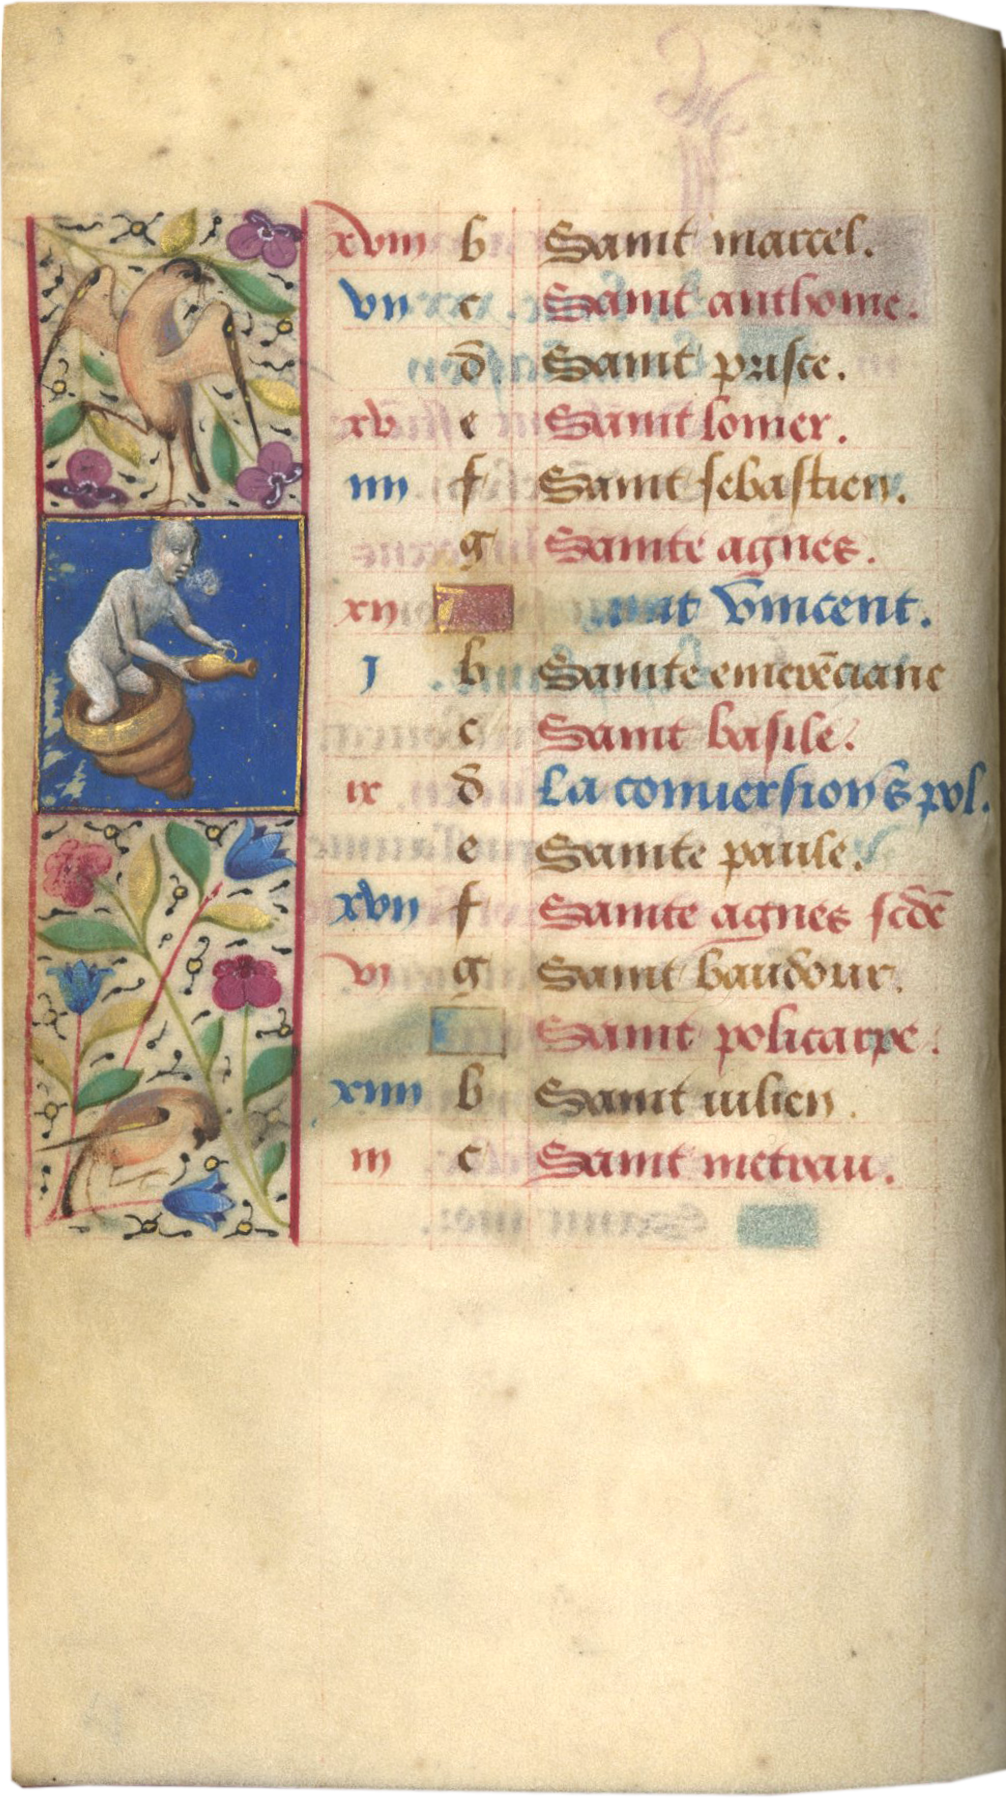 xviii b Saint marcel.
vii c Saint anthoine.
d Saint prisce.
xv e Saint lomer.
iiii f Saint sebastien.
g Sainte agnes.
xii Saint vincent.
j b Sainte emerẽciane
c Saint basile.
ix d La conversion s pol.
e Sainte paule.
xvii f Sainte agnes scdẽ
vi g Saint baudour.
Saint policarpe.
xiiii b Saint iulien.
iii c Saint metran.